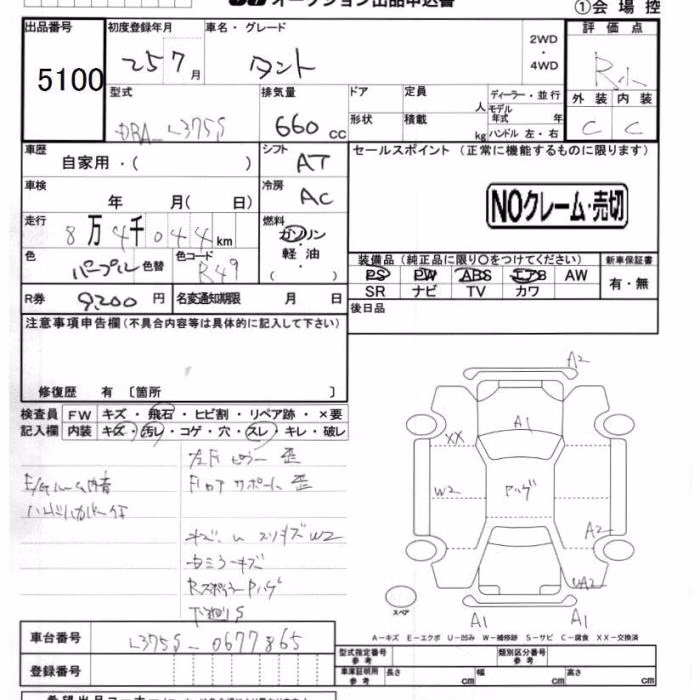 オークション出品申込書
①会場控
出品番号
5100
初度登録年月
25 7月
車名・グレード
タント
2WD
・
4WD
評価点
R小
外装 内装
C C
型式
DBA-L375S
排気量
660 cc
ドア
定員 人
形状
積載 kg
ディーラー・並行
モデル年式 年
ハンドル 左・右
車歴
自家用・( )
シフト
AT
セールスポイント (正常に機能するものに限ります)
NOクレーム・売切
車検
年 月( 日)
冷房
AC
走行
8万4千044km
燃料
ガソリン
軽油
( )
色
パープル 色替
色コード
R49
装備品 (純正品に限り○をつけてください)
PS PW ABS エアB AW
SR ナビ TV カワ
新車保証書
有・無
R券 9200円
名変通知期限 月 日
後日品
注意事項申告欄(不具合内容等は具体的に記入して下さい)
修復歴 有 〔箇所 〕
検査員記入欄
FW キズ・飛石・ヒビ割・リペア跡・×要
内装 キズ・汚レ・コゲ・穴・スレ・キレ・破レ
A2
A1
XX
W2
Pハゲ
A2
UA2
A1 A1
スペア
A-キズ E-エクボ U-凹み W-補修跡 S-サビ C-腐食 XX-交換済
E/Gルーム内音
歪
サポート 歪
W2
ミラーキズ
Rスポイラー Pハゲ
下廻りS
車台番号
L375S-0677865
登録番号
型式指定番号
参考
類別区分番号
参考
車庫証明用
参考
長さ cm
幅 cm
高さ cm
希望出品コーナー